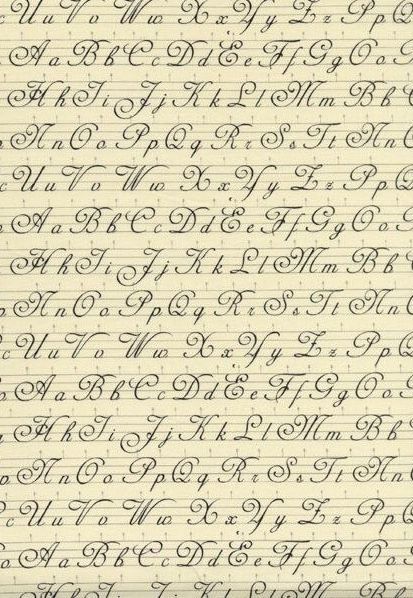 c Uu Vv Ww Xx Yy Zz Pp Q
Aa Bb Cc Dd Ee Ff Gg Oo
Hh Ii Jj Kk Ll Mm Bb C
Nn Oo Pp Qq Rr Ss Tt Nn O
c Uu Vv Ww Xx Yy Zz Pp Q
Aa Bb Cc Dd Ee Ff Gg Oo
Hh Ii Jj Kk Ll Mm Bb C
Nn Oo Pp Qq Rr Ss Tt Nn O
c Uu Vv Ww Xx Yy Zz Pp Q
Aa Bb Cc Dd Ee Ff Gg Oo
Hh Ii Jj Kk Ll Mm Bb C
Nn Oo Pp Qq Rr Ss Tt Nn O
c Uu Vv Ww Xx Yy Zz Pp Q
Aa Bb Cc Dd Ee Ff Gg Oo
Hh Ii Jj Kk Ll Mm Bb